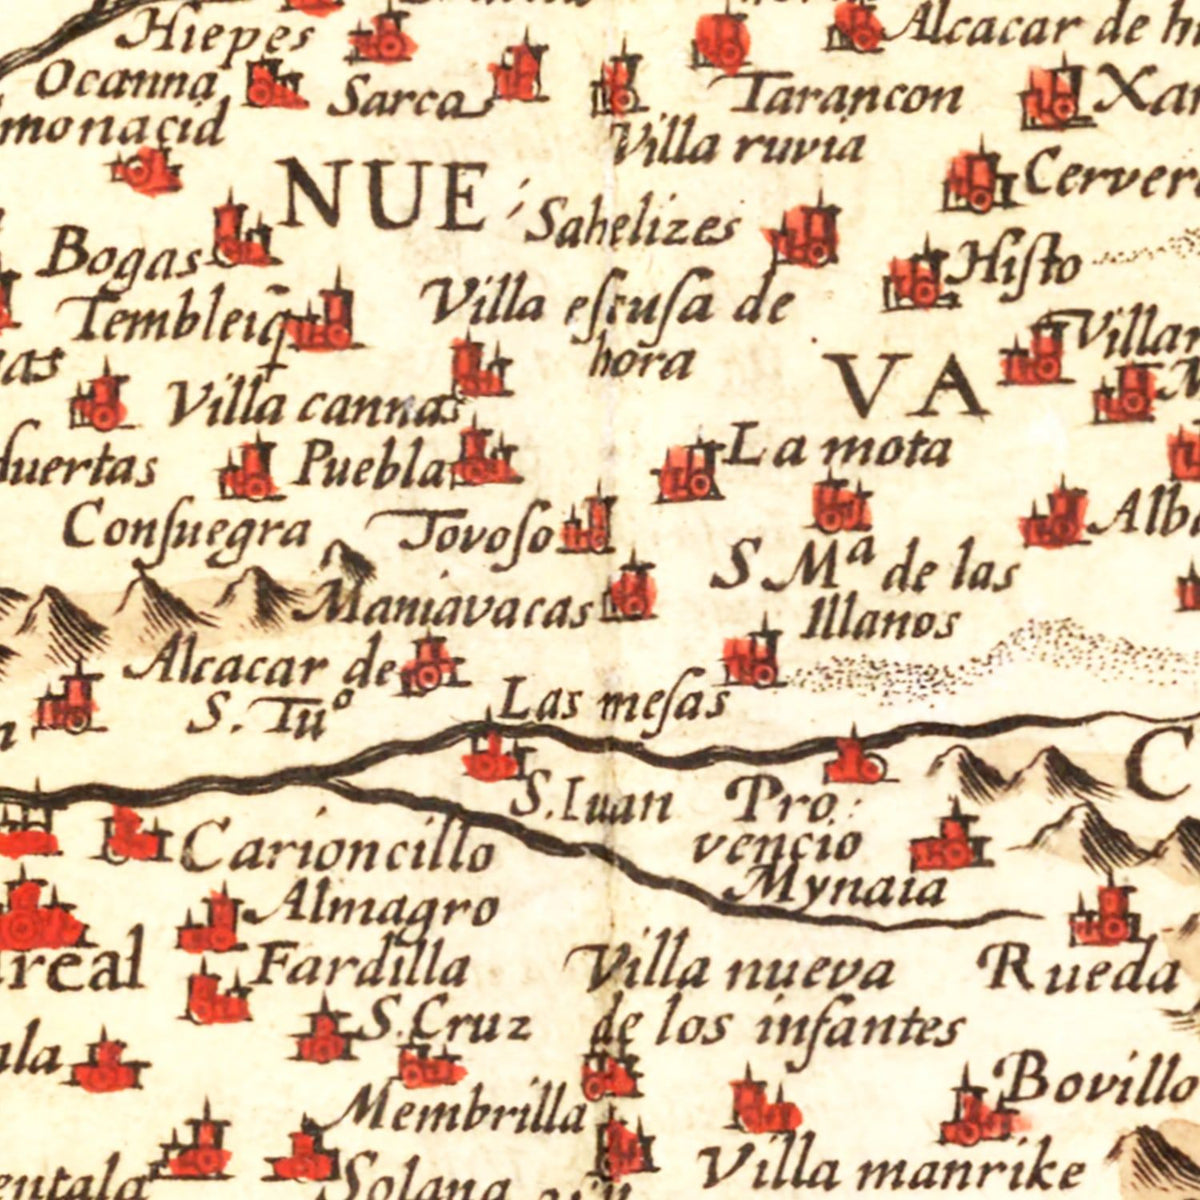 Hiepes
Alcacar de
Ocanna
Sarca
Tarancon
monacid
Villa ruvia
NUE
Sahelizes
Bogas
Histo
Villa escusa de
hora
VA
Villa cannas
La mota
duertas
Puebla
Consuegra
Tovoso
S Mª de las
Illanos
Maniavacas
Alcacar de
S. Tuº
Las mesas
C
S. Iuan
Pro
vencio
Carioncillo
Mynaia
Almagro
real
Fardilla
Villa nueva
de los infantes
Rueda
S. Cruz
Bovillo
Membrilla
Villa manrike
Solana